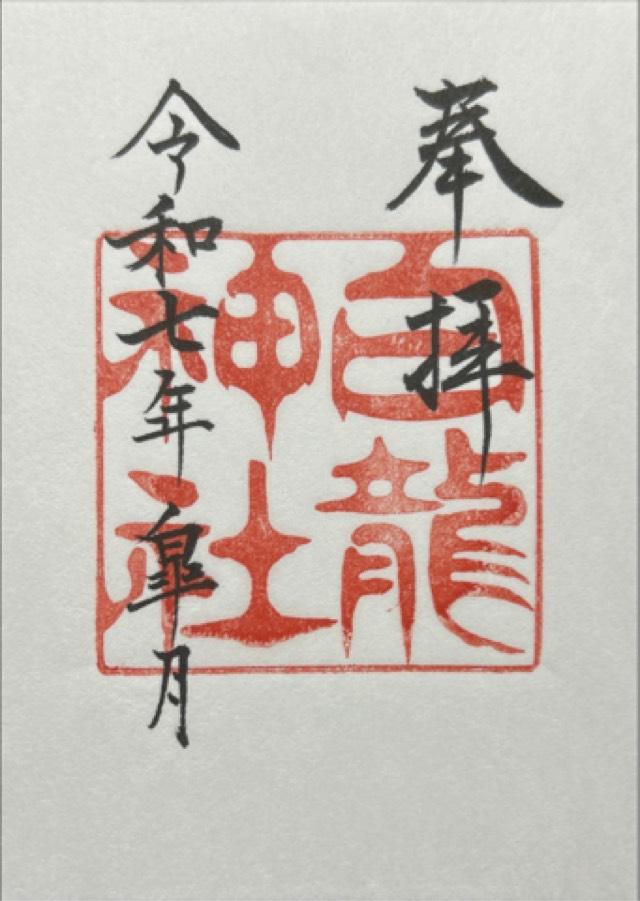 奉拝
白龍
神社
令和七年皐月